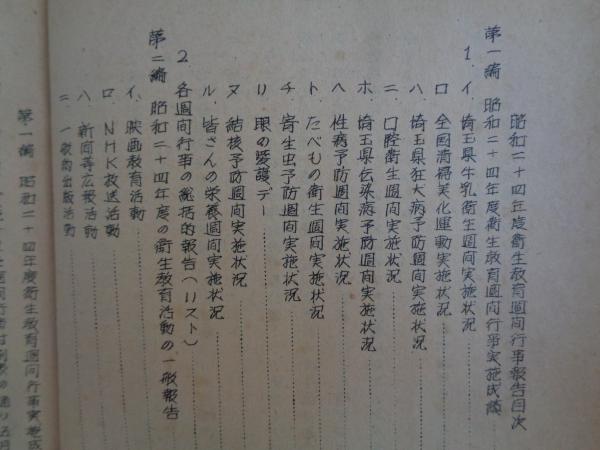 昭和二十四年度衛生教育週间行事報告目次
第一編 昭和二十四年度衛生教育週间行事実施成績
1. イ. 埼玉県牛乳衛生週间実施状況
ロ 全国清掃美化運動実施状況
ハ. 埼玉県狂犬病予防週间実施状況
ニ. 口腔衛生週间実施状況
ホ. 埼玉県伝染病予防週间実施状況
ヘ 性病予防週间実施状況
ト. たべもの衛生週间実施状況
チ. 寄生虫予防週间実施状況
リ 眼の愛護デー
ヌ 結核予防週间実施状況
ル. 皆さんの栄養週间実施状況
2. 各週间行事の総括的報告(リスト)
第二編 昭和二十四年度の衛生教育活動の一般報告
イ. 映画教育活動
ロ. NHK放送活動
ハ 新聞等広報活動
ニ. 一般的出版活動
第一編 昭和二十四年度衛生教育週间行事実施成